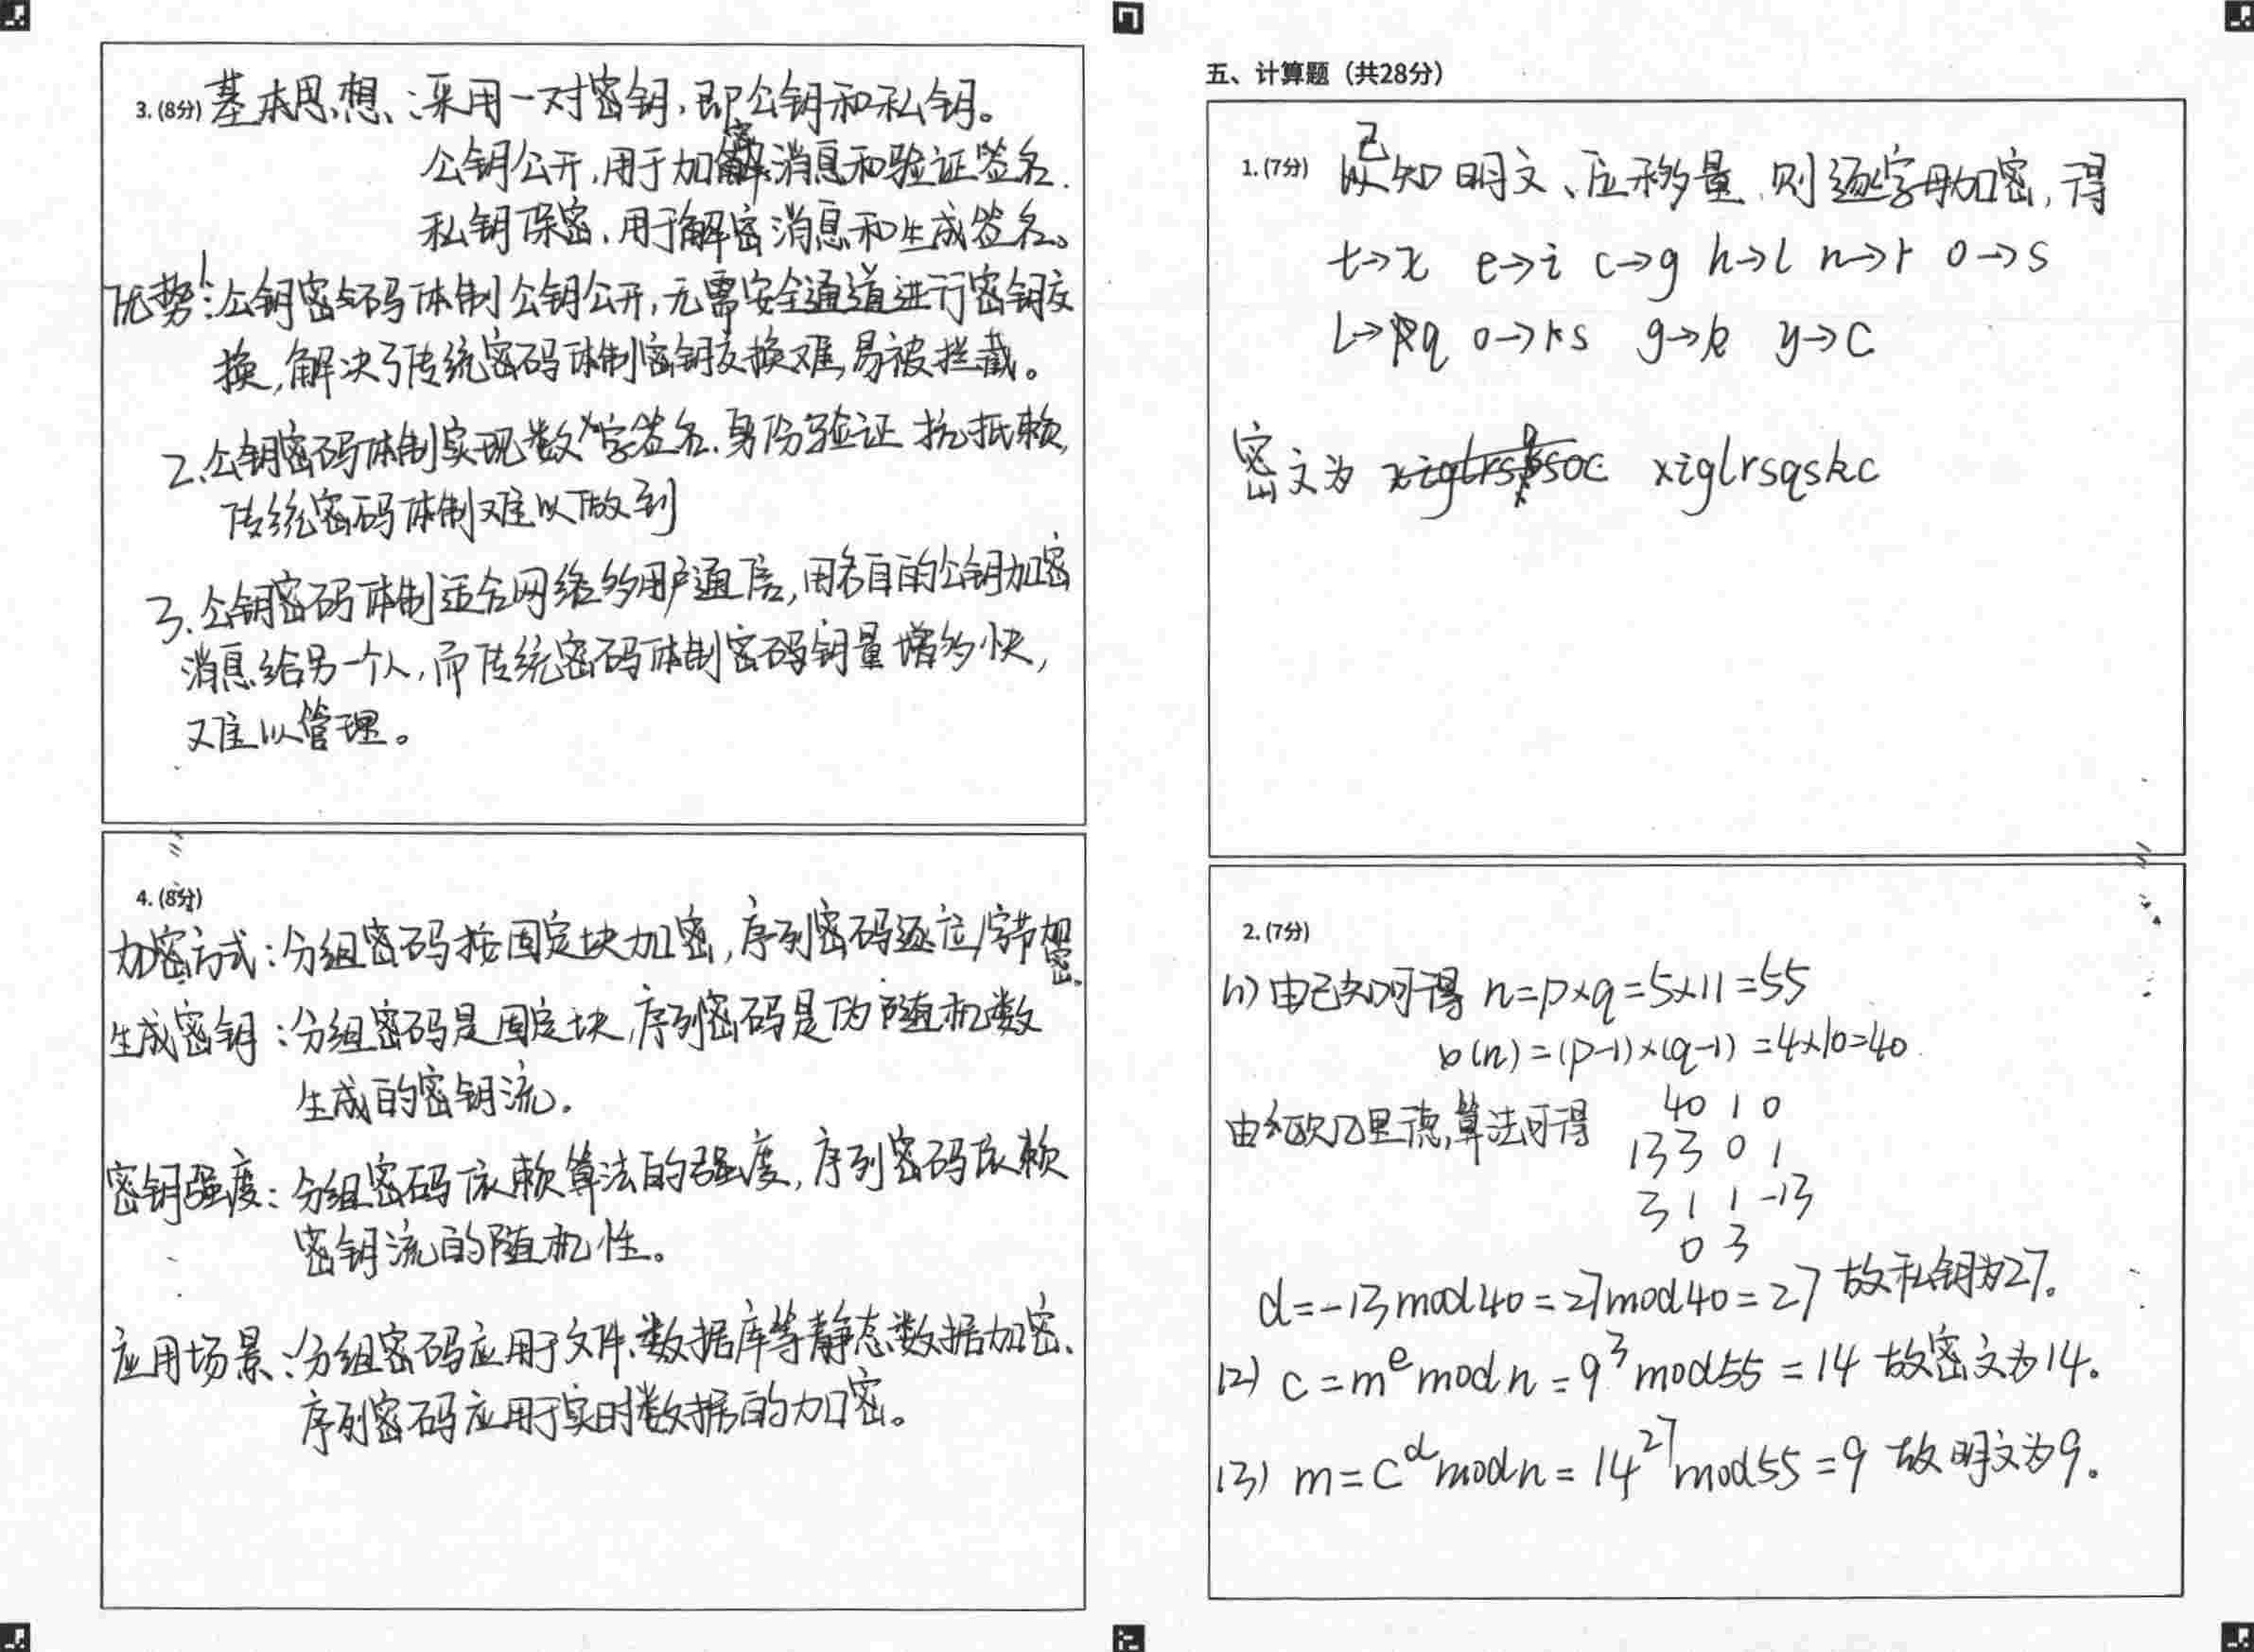 3.(8分) 基本思想：采用一对密钥，即公钥和私钥。
公钥公开，用于加密消息和验证签名.
私钥保密，用于解密消息和生成签名。
优势：1.公钥密码体制公钥公开，无需安全通道进行密钥交
换，解决了传统密码体制密钥交换难，易被拦截。
2.公钥密码体制实现数字签名、身份验证 抗抵赖，
传统密码体制难以做到
3.公钥密码体制适合网络多用户通信，用各自的公钥加密
消息给另一个人，而传统密码体制密码钥量增多快，
难以管理。
4.(8分)
加密方式：分组密码按固定块加密，序列密码逐位/字节加密。
生成密钥：分组密码是固定块，序列密码是伪随机数
生成的密钥流。
密钥强度：分组密码依赖算法的强度，序列密码依赖
密钥流的随机性。
应用场景：分组密码应用于文件、数据库等静态数据加密、
序列密码应用于实时数据的加密。
五、计算题（共28分）
1.(7分) 已知明文、位移量，则逐字母加密，得
t→x e→i c→g h→l n→r o→s
l→q o→s g→k y→c
密文为 xiglrsqskc
2.(7分)
(1) 由已知可得 n=p×q=5×11=55
φ(n)=(p-1)×(q-1)=4×10=40
由欧几里德算法可得
40 1 0
13 3 0 1
3 1 1 -13
0 3
d=-13mod40=27mod40=27 故私钥为27。
(2) c=m^e mod n=9^3 mod55=14 故密文为14。
(3) m=c^d mod n=14^27 mod55=9 故明文为9。